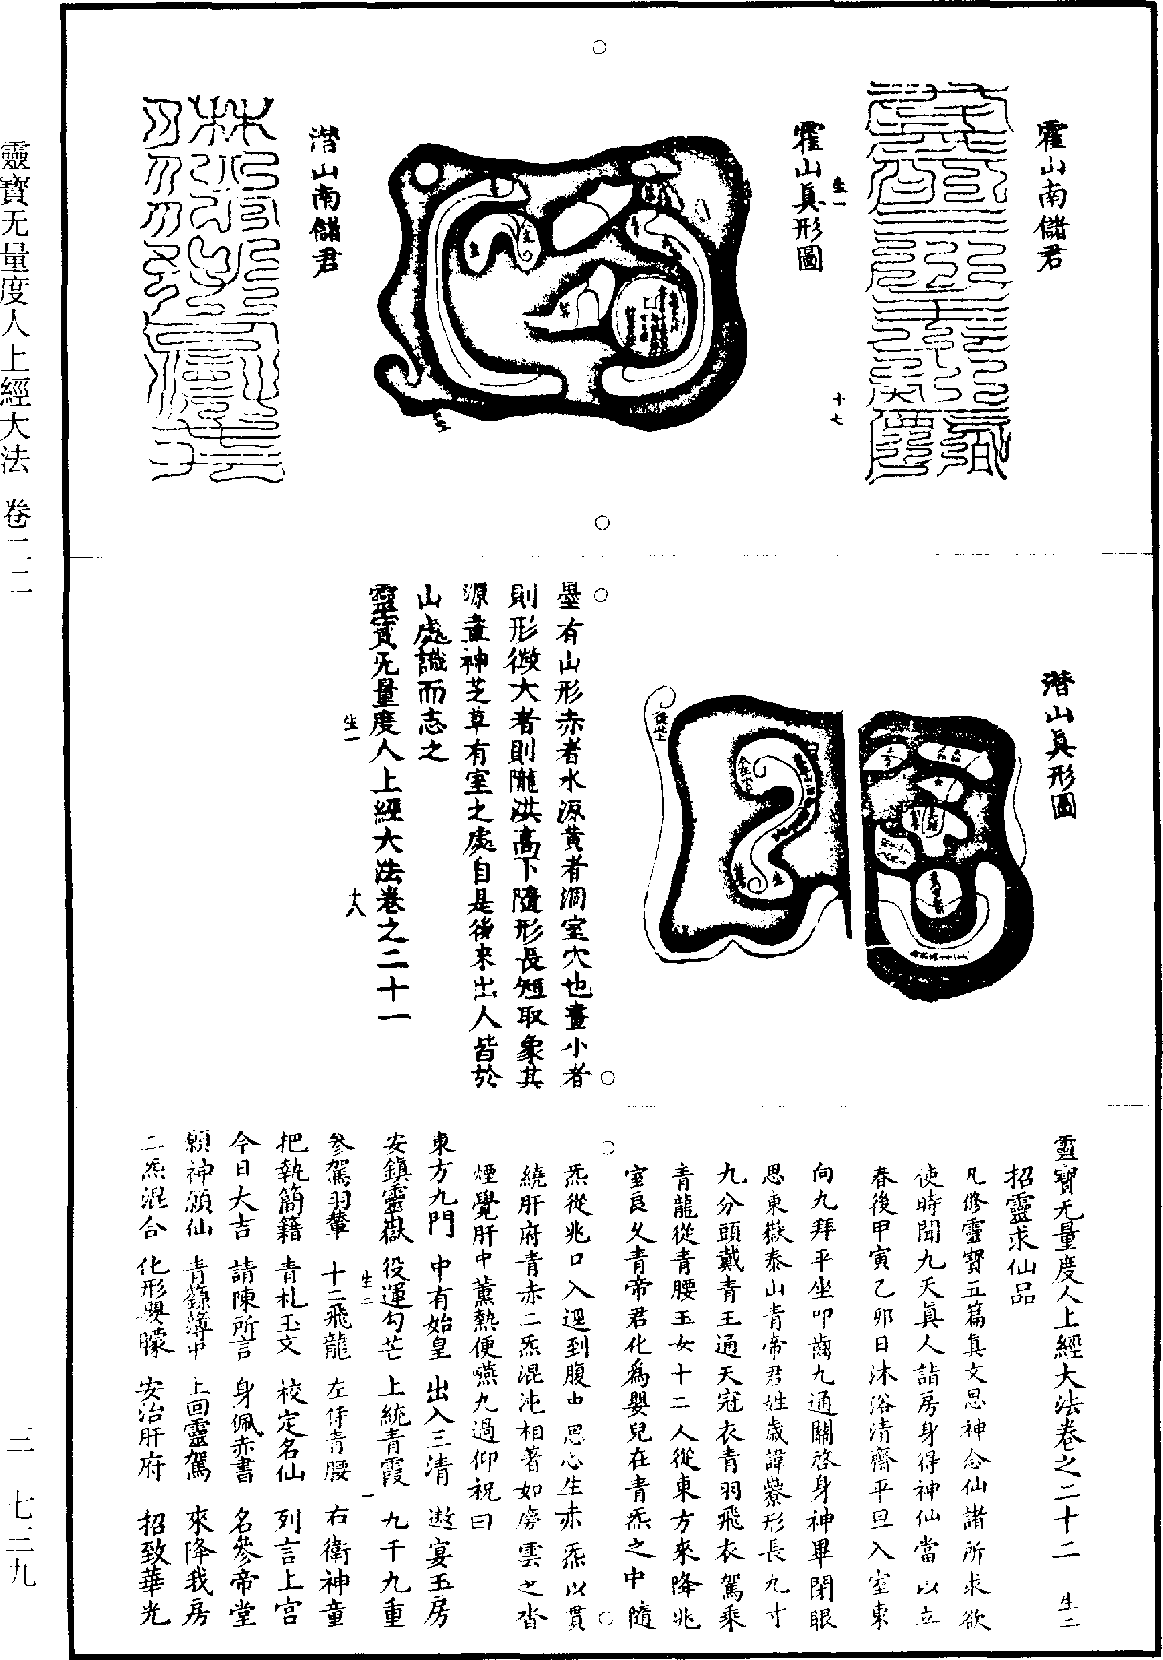 霍山南儲君
霍山真形圖
生一
十七
潛山南儲君
潛山真形圖
墨有山形赤者水源黃者洞室穴也畫小者
則形微大者則隴洪高下隨形長短取象其
源畫神芝草有室之處自是後來出人皆於
山處識而志之
靈寶无量度人上經大法卷之二十一
生一
十八
靈寶无量度人上經大法卷之二十二 生二
招靈求仙品
凡修靈寶五篇真文思神念仙諸所求欲
使時聞九天真人詣房身得神仙當以立
春後甲寅乙卯日沐浴清齋平旦入室東
向九拜平坐叩齒九通關啓身神畢閉眼
思東嶽泰山青帝君姓歲諱縈形長九寸
九分頭戴青玉通天冠衣青羽飛衣駕乘
青龍從青腰玉女十二人從東方來降兆
室良久青帝君化爲嬰兒在青炁之中隨
炁從兆口入逕到腹中思心生赤炁以貫
繞肝府青赤二炁混沌相著如慶雲之沓
煙覺肝中薰熱便嚥九過仰祝曰
東方九門 中有始皇 出入三清 遊宴玉房
安鎮靈嶽 役運勾芒 上統青霞 九千九重
參駕羽輦 十二飛龍 左侍青腰 右衛神童
生二
一
把執簡籍 青札玉文 校定名仙 列言上宮
今日大吉 請陳所言 身佩赤書 名參帝堂
願神願仙 青籙簿中 上回靈駕 來降我房
二炁混合 化形嬰曚 安治肝府 招致華光
靈寶无量度人上經大法 卷二二
三 七三九